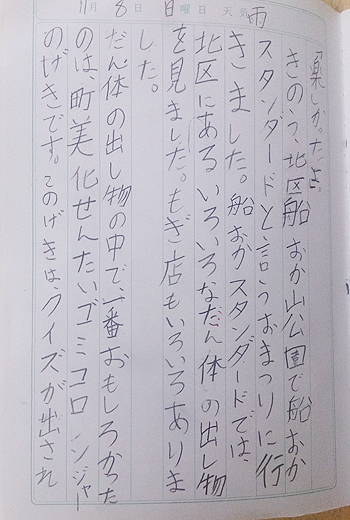 11月 8日 日曜日 天気 雨
「楽しかったよ。
きのう、北区船おか山公園で船おか
スタンダードと言うおまつりに行
きました。船おかスタンダードでは、
北区にあるいろいろなだん体の出し物
を見ました。もぎ店もいろいろありま
した。
だん体の出し物の中で、一番おもしろかった
のは、町美化せんたいゴミコロンジャー
のげきです。このげきは、クイズが出され